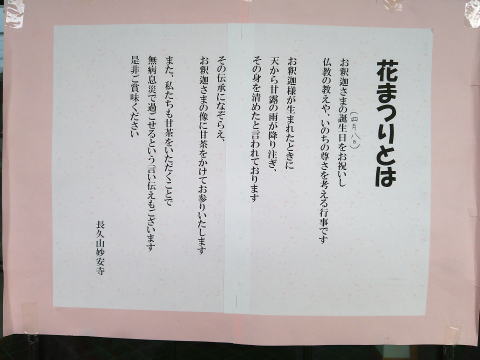 花まつりとは
お釈迦さまの誕生日をお祝いし
（四月八日）
仏教の教えや、いのちの尊さを考える行事です
お釈迦様が生まれたときに
天から甘露の雨が降り注ぎ、
その身を清めたと言われております
その伝承になぞらえ、
お釈迦さまの像に甘茶をかけてお参りいたします
また、私たちも甘茶をいただくことで
無病息災で過ごせるという言い伝えもございます
是非ご賞味ください
長久山妙安寺